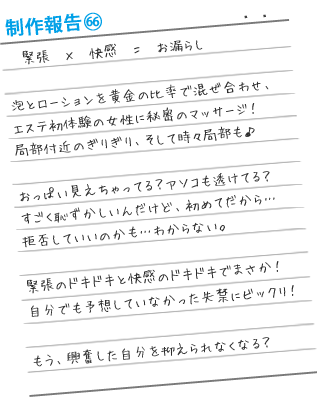 制作報告66
緊張 × 快感 = お漏らし
泡とローションを黄金の比率で混ぜ合わせ、
エステ初体験の女性に秘密のマッサージ！
局部付近のぎりぎり、そして時々局部も♪
おっぱい見えちゃってる？アソコも透けてる？
すごく恥ずかしいんだけど、初めてだから…
拒否していいのかも…わからない。
緊張のドキドキと快感のドキドキでまさか！
自分でも予想していなかった失禁にビックリ！
もう、興奮した自分を抑えられなくなる？